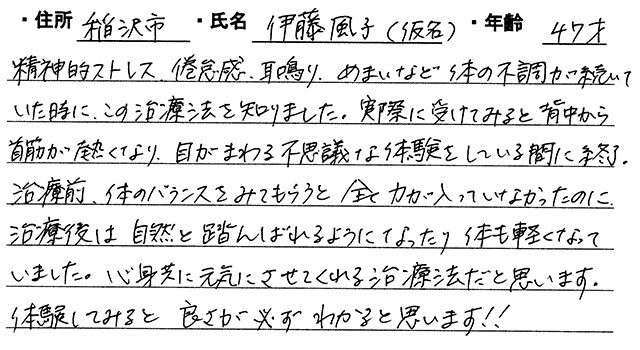 ・住所 稲沢市 ・氏名 伊藤風子(仮名) ・年齢 47才
精神的ストレス、倦怠感、耳鳴り、めまいなど体の不調が続いて
いた時に、この治療法を知りました。実際に受けてみると背中から
首筋が熱くなり、目がまわる不思議な体験をしている間に終了。
治療前、体のバランスをみてもらうと全く力が入っていなかったのに、
治療後は自然と踏んばれるようになったり体も軽くなって
いました。心身共に元気にさせてくれる治療法だと思います。
体験してみると良さが必ずわかると思います!!